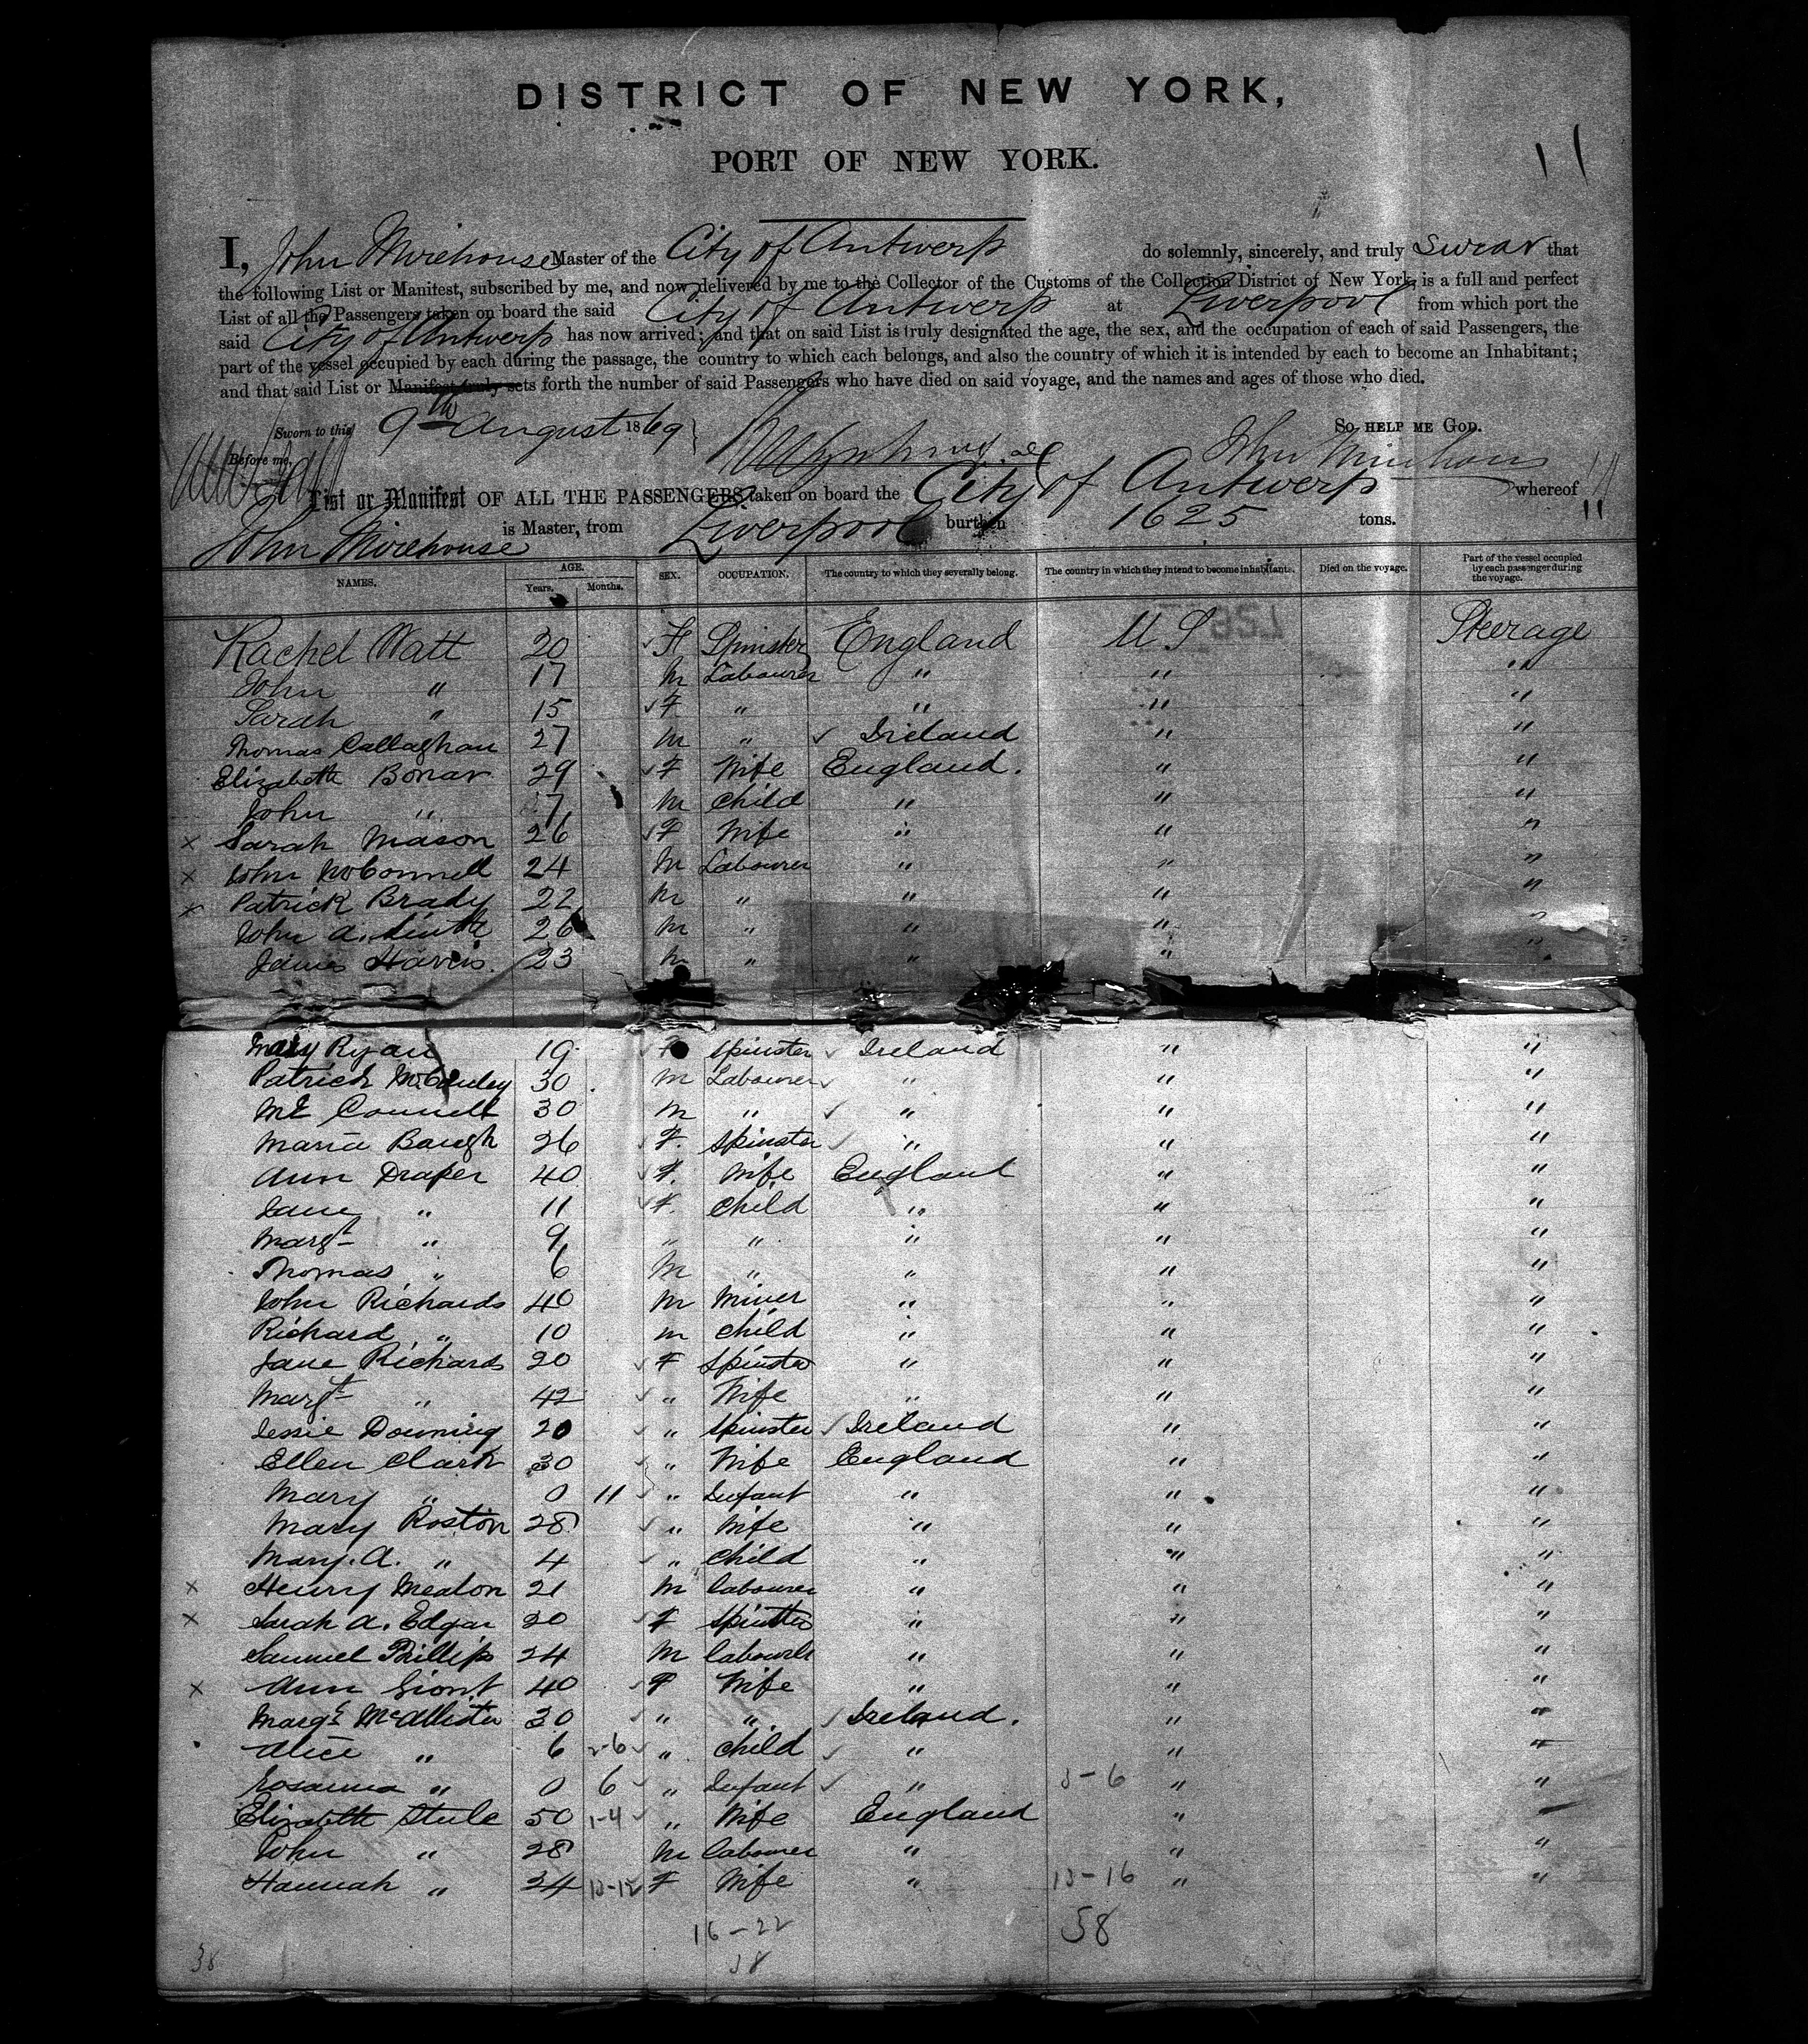 DISTRICT OF NEW YORK,
PORT OF NEW YORK.
11
I, John Mirehouse Master of the City of Antwerp do solemnly, sincerely, and truly Swear that
the following List or Manifest, subscribed by me, and now delivered by me to the Collector of the Customs of the Collection District of New York, is a full and perfect
List of all the Passengers taken on board the said City of Antwerp at Liverpool from which port the
said City of Antwerp has now arrived; and that on said List is truly designated the age, the sex, and the occupation of each of said Passengers, the
part of the vessel occupied by each during the passage, the country to which each belongs, and also the country of which it is intended by each to become an Inhabitant;
and that said List or Manifest truly sets forth the number of said Passengers who have died on said voyage, and the names and ages of those who died.
Sworn to this 9th August 1869 So HELP ME GOD.
Before me, John Mirehouse
List or Manifest OF ALL THE PASSENGERS taken on board the City of Antwerp whereof
John Mirehouse is Master, from Liverpool burthen 1625 tons.
NAMES. AGE. Years. Months. SEX. OCCUPATION. The country to which they severally belong. The country in which they intend to become inhabitants. Died on the voyage. Part of the vessel occupied by each passenger during the voyage.
Rachel Watt 20 F Spinster England U S Steerage
John " 17 M Labourer " " "
Sarah " 15 F " " " "
Thomas Callaghan 27 M " Ireland " "
Elizabeth Bonar 29 F Wife England. " "
John " 7 M Child " " "
x Sarah Mason 26 F Wife " " "
x John McConnell 24 M Labourer " " "
x Patrick Brady 22 M " " " "
John A. 26 M " " " "
James Harris. 23 M " " " "
Mary Ryan 19 F Spinster Ireland " "
Patrick McCauley 30 M Labourer " " "
Connell 30 M " " " "
Maria Baugh 26 F. Spinster " " "
Ann Draper 40 F. Wife England " "
Jane " 11 F. Child " " "
Margt " 9 " " " " "
Thomas " 6 M " " " "
John Richards 40 M Miner " " "
Richard " 10 M Child " " "
Jane Richards 20 F Spinster " " "
Margt " 42 " Wife " " "
Jessie Downing 20 " Spinster Ireland " "
Ellen Clark 30 " Wife England " "
Mary " 0 11 " Infant " " "
Mary Roston 28 " Wife " " "
Mary. A. " 4 " Child " " "
x Henry Meaton 21 M Labourer " " "
x Sarah A. Edgar 20 F Spinster " " "
Samuel Phillips 24 M Labourer " " "
x Ann 40 F Wife " " "
Margt McAllister 30 " " Ireland. " "
Alice " 6 " Child " " "
Rosanna " 0 6 " Infant " 3-6 " "
Elizabeth Stule 50 1-4 " Wife England " "
John " 28 M Labourer " " "
Hannah " 34 F Wife " 13-16 " "
16-22 58
38
38